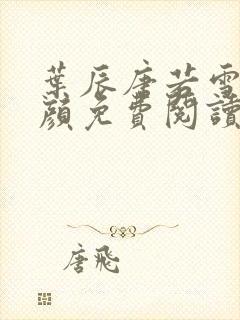 葉辰唐若雪
顔免費閱讀
唐飛